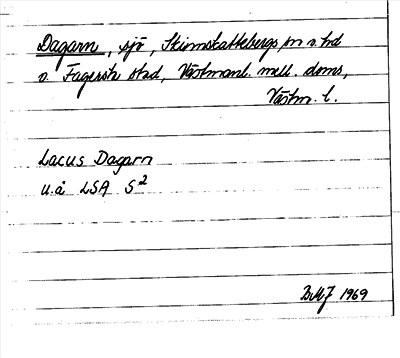 Dagarn, sjö, Skinnskattebergs sn o. hd
o. Fagersta stad, Västmanl. mell. doms,
Västm. l.
Lacus Dagarn
u.å LSA S2
BMJ 1969